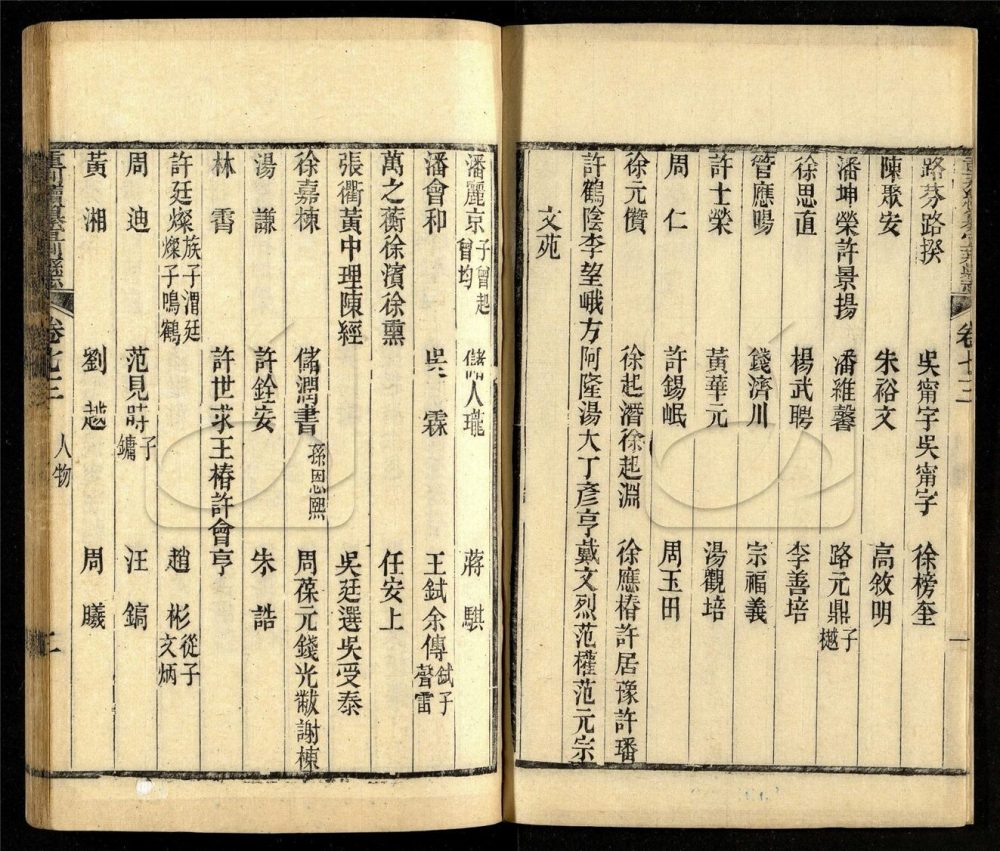 路芬路揆 吳甯字吳甯字 徐榜奎
陳聚安 朱裕文 高敘明
潘坤榮許景揚 潘維馨 路元鼎子樾
徐思直 楊武聘 李善培
管應暘 錢濟川 宗福義
許士榮 黃華元 湯觀培
周仁 許錫岷 周玉田
徐元儹 徐起潛徐起淵 徐應椿許居豫許璠
許鶴陰李望峨方阿隆湯大丁彥亨戴文烈范權范元宗
文苑
卷七二 一
潘麗京子曾起曾均 儲人瓏 蔣騏
潘會和 吳霖 王鉽余傳鉽子聲雷
萬之蘅徐濱徐熏 任安上
張衢黃中理陳經 吳廷選吳受泰
徐嘉棟 儲潤書孫恩熙 周葆元錢光黻謝棟
湯謙 許銓安 朱誥
林霱 許世求王椿許會亨
許廷燦族子渭廷燦子鳴鶴 趙彬從子文炳
周迪 范見時子鏞 汪鎬
黃湘 劉越 周曦
卷七三 人物 二